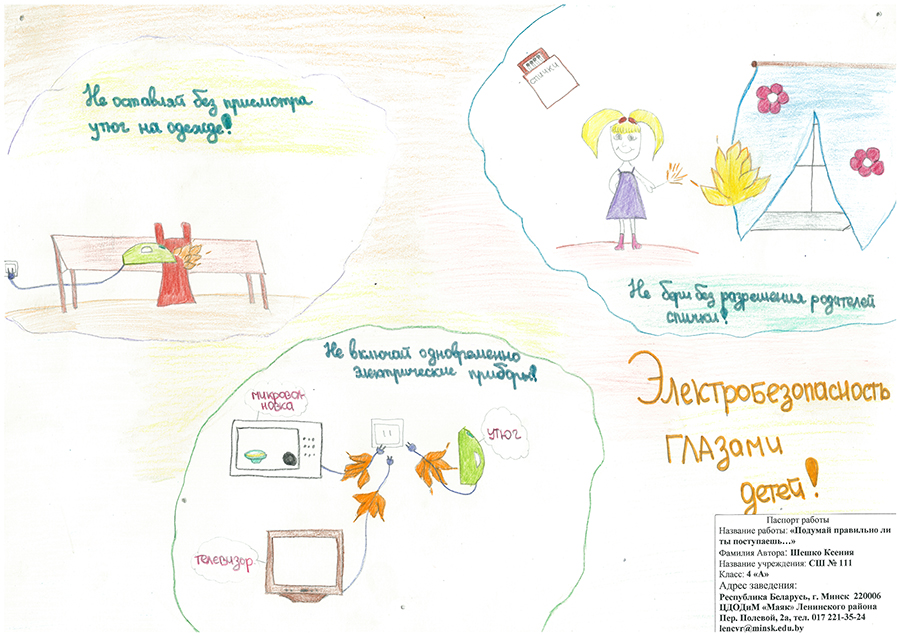 Не оставляй без присмотра
утюг на одежде!
спички
Не бери без разрешения родителей
спички!
Не включай одновременно
электрические приборы!
микровол
новка
утюг
телевизор
Электробезопасность
глазами
детей!
Паспорт работы
Название работы: «Подумай правильно ли
ты поступаешь…»
Фамилия Автора: Шешко Ксения
Название учреждения: СШ № 111
Класс: 4 «А»
Адрес заведения:
Республика Беларусь, г. Минск 220006
ЦДОДиМ «Маяк» Ленинского района
Пер. Полевой, 2а, тел. 017 221-35-24
lencvr@minsk.edu.by